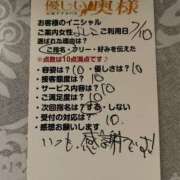 優しい奥様
お客様のイニシャル
ご案内女性 よしこ ご利用日 7/10
選ばれた理由は?
ご指名・フリー・好みを伝えた
※点数は10点満点です♪
・容姿は? 10 ・優しさは? 10
・接客態度は? 10
・サービス内容は? 10
・ご満足度は? 10
・次回指名は?する・しない
・受付の対応は? 10
感想お願いします
いつも、感謝です!